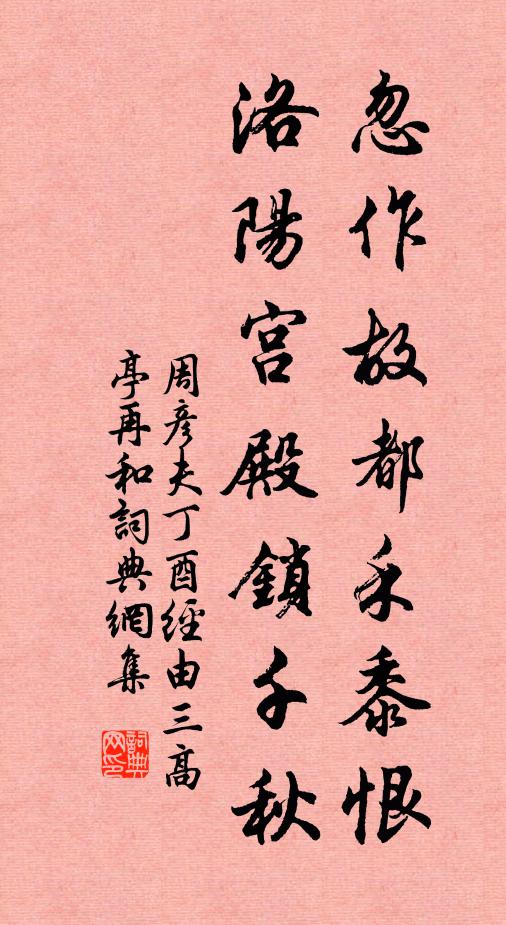 忽作故都禾黍恨
洛陽宮殿鎖千秋
周彥夫丁酉經由三高
亭再和詞典網集
詞典網印